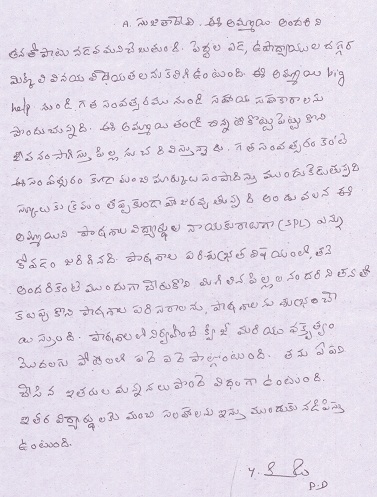 A. సుజాతాదేవి. ఈ అమ్మాయి అందరిని
తనతోపాటు నడవమని చేబుతుంది. పెద్దల ఎడ, ఉపాధ్యాయుల దగ్గర
మిక్కిలి వినయ విధేయతలను కలిగి ఉంటుంది. ఈ అమ్మాయి big
help నుండి గత సంవత్సరము నుండి సహాయ సహకారాలను
పొందుచున్నది. ఈ అమ్మాయి తండ్రి చిన్న కొట్టు పెట్టు కొని
జీవనం సాగిస్తు పిల్లలను చదివిస్తున్నాడు. గత సంవత్సరం కంటె
ఈ సంవత్సరం కూడా మంచి మార్కులు సంపాదిస్తు ముందుకెడుతున్నది
స్కూలుకు క్రమం తప్పకుండా హాజరవుతున్నది అందు వలన ఈ
అమ్మాయిని పాఠశాల విద్యార్థుల నాయకురాలుగా (SPL) ఎన్ను
కోవడం జరిగినది. పాఠశాల పరిశుభ్రత విషయంలో, తనే
అందరికంటె ముందుగా చేరుకొని మిగిలిన పిల్లలనందరిని తనతో
కలుపుకొని పాఠశాల పరిసరాలను, పాఠశాలను శుభ్రం చే
యిస్తుంది. పాఠశాలలో నిర్వహించే క్విజ్ మరియు వక్తృత్వం
మొదలగు పోటీలలో పదే పదే పాల్గొంటుంది. తను ఏ పని
చేసిన ఇతరుల మన్ననలు పొందే విధంగా ఉంటుంది.
ఇతర విద్యార్థులకు మంచి సలహాలను ఇస్తు ముందుకు నడిపిస్తు
ఉంటుంది.